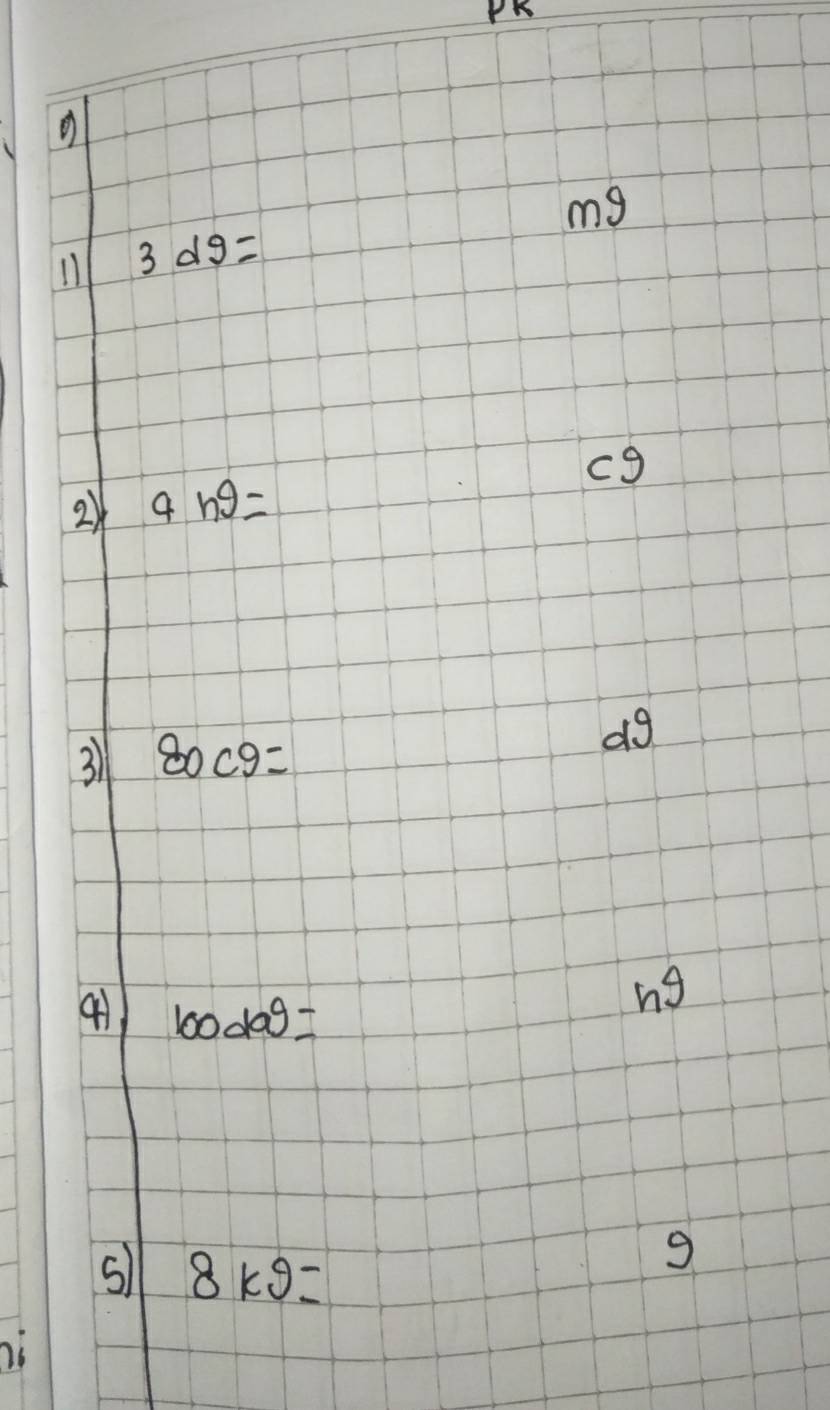 PK
1) 3 dg = mg
2) 4 hg = cg
3) 80 cg = dg
4) 100 dag = hg
5) 8 kg = g